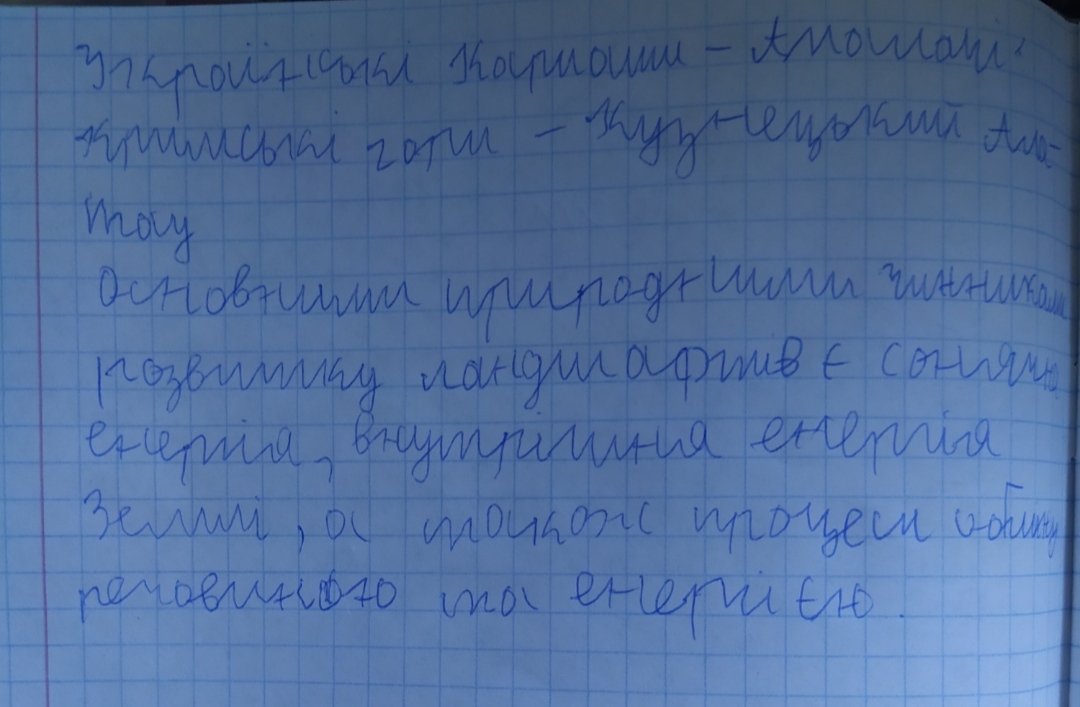 Українські Карпати – Апалачі.
Кримські гори – Кузнецький Ала-
тау
Основними природними чинниками
розвитку ландшафтів є сонячна
енергія, внутрішня енергія
Землі, а також процеси обміну
речовиною та енергією.